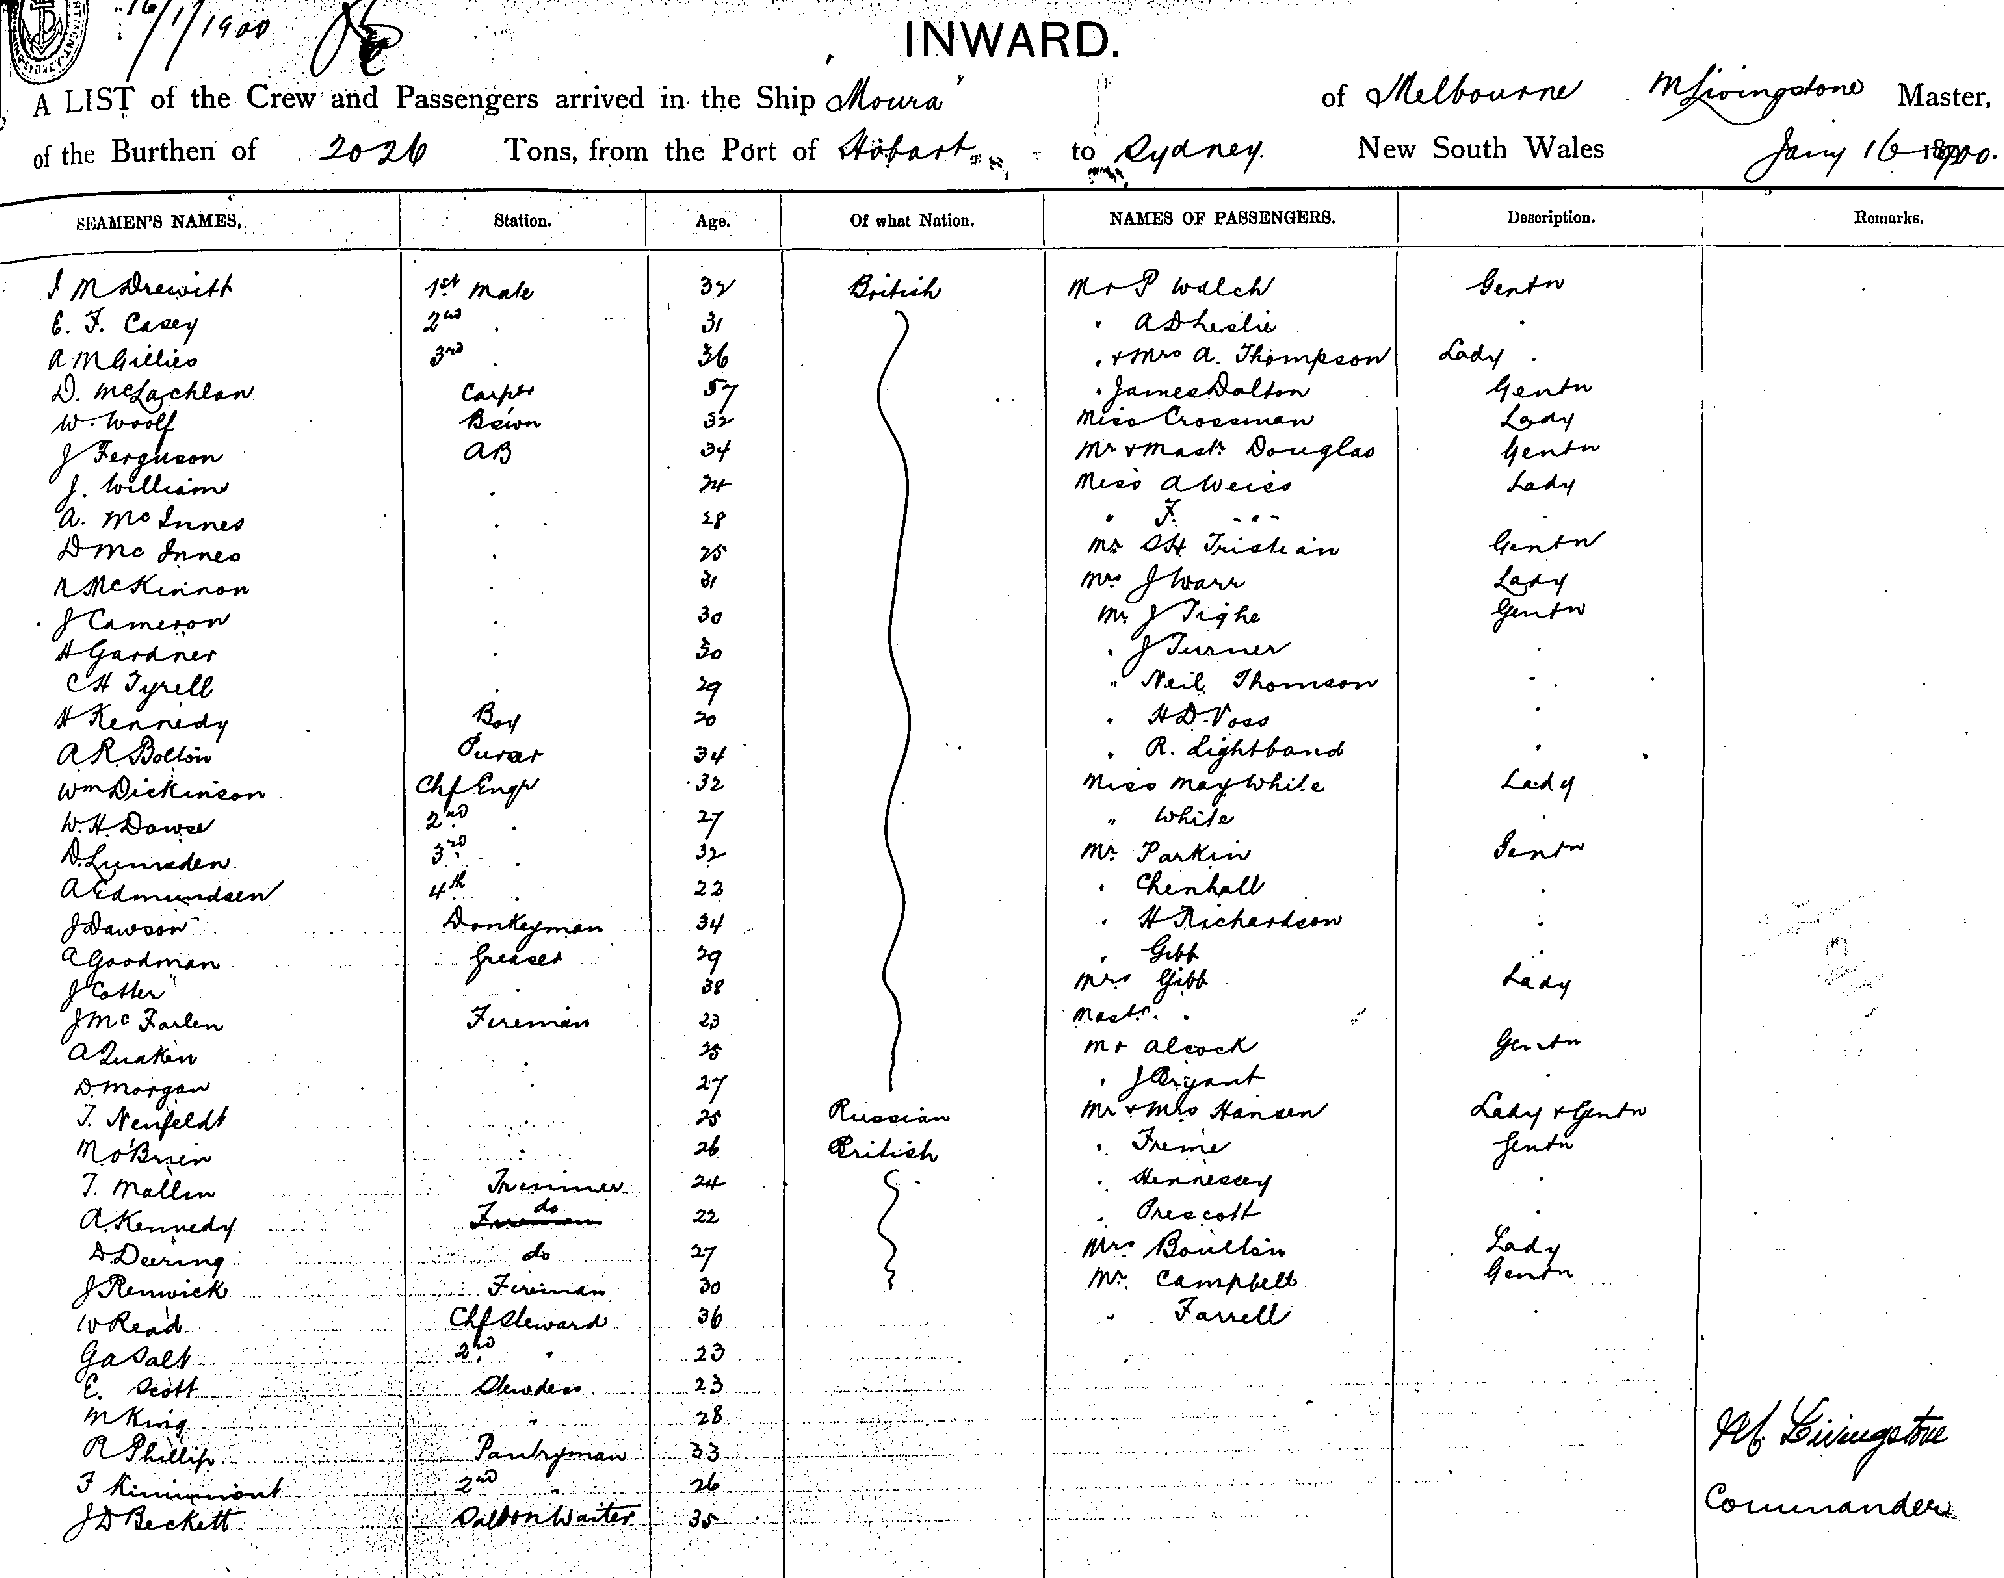 16/1/1900
INWARD.
A LIST of the Crew and Passengers arrived in the Ship "Moura" of Melbourne M Livingstone Master,
of the Burthen of 2026 Tons, from the Port of Hobart to Sydney. New South Wales Jany 16 1900.
SEAMEN'S NAMES. Station. Age. Of what Nation. NAMES OF PASSENGERS. Description. Remarks.
J M Drewitt 1st Mate 32 British Mr P Walch Gentn
E. F. Casey 2nd " 31 " A D Leslie "
A M Gillies 3rd " 36 " & Mrs A. Thompson Lady "
D. McLachlan Carptr 57 " James Dalton Gentn
W. Woolf Bswn 32 Miss Crossman Lady
J Ferguson AB 34 Mr & Mastr Douglas Gentn
J. William " 24 Miss A Weiss Lady
A. McInnes " 28 " F. " "
D McInnes " 25 Mr S H Tristian Gentn
N McKinnon " 31 Mrs J Warr Lady
J Cameron " 30 Mr J Tighe Gentn
H Gardner " 30 " J Turner "
C H Tyrell " 29 " Neil Thomson "
H Kennedy Boy 20 " H D. Voss "
A R Bolton Purser 34 " R. Lightband "
Wm Dickinson Chf Engr 32 Miss May White Lady
W. H. Dawse 2nd " 27 " White "
D. Lumsden 3rd " 32 Mr Parkin Gentn
A Edmundsen 4th " 23 " Chenhall "
J Dawson Donkeyman 34 " H Richardson "
A Goodman Greaser 29 " Gibb "
J Cotter " 38 Mrs Gibb Lady
J McFarlen Fireman 23 Mastr "
A Quaken " 25 Mr Alcock Gentn
D Morgan " 27 " J Bryant "
T. Neufeldt " 25 Russian Mr & Mrs Hansen Lady & Gentn
M O'Brien " 26 British " Freme Gentn
T. Mallin Trimmer 24 " Hennessey "
A. Kennedy Fireman do 22 " Prescott "
D Deering do 27 Mrs Boulton Lady
J Renwick Fireman 30 Mr. Campbell Gentn
W Read Chf Steward 36 " Farrell "
G A Salt 2nd " 23
E. Scott Stewdess 23
M King " 28
R Phillip Pantryman 33
F Kinninmont 2nd " 26
J D Beckett Saloon Waiter 35
M Livingstone
Commander